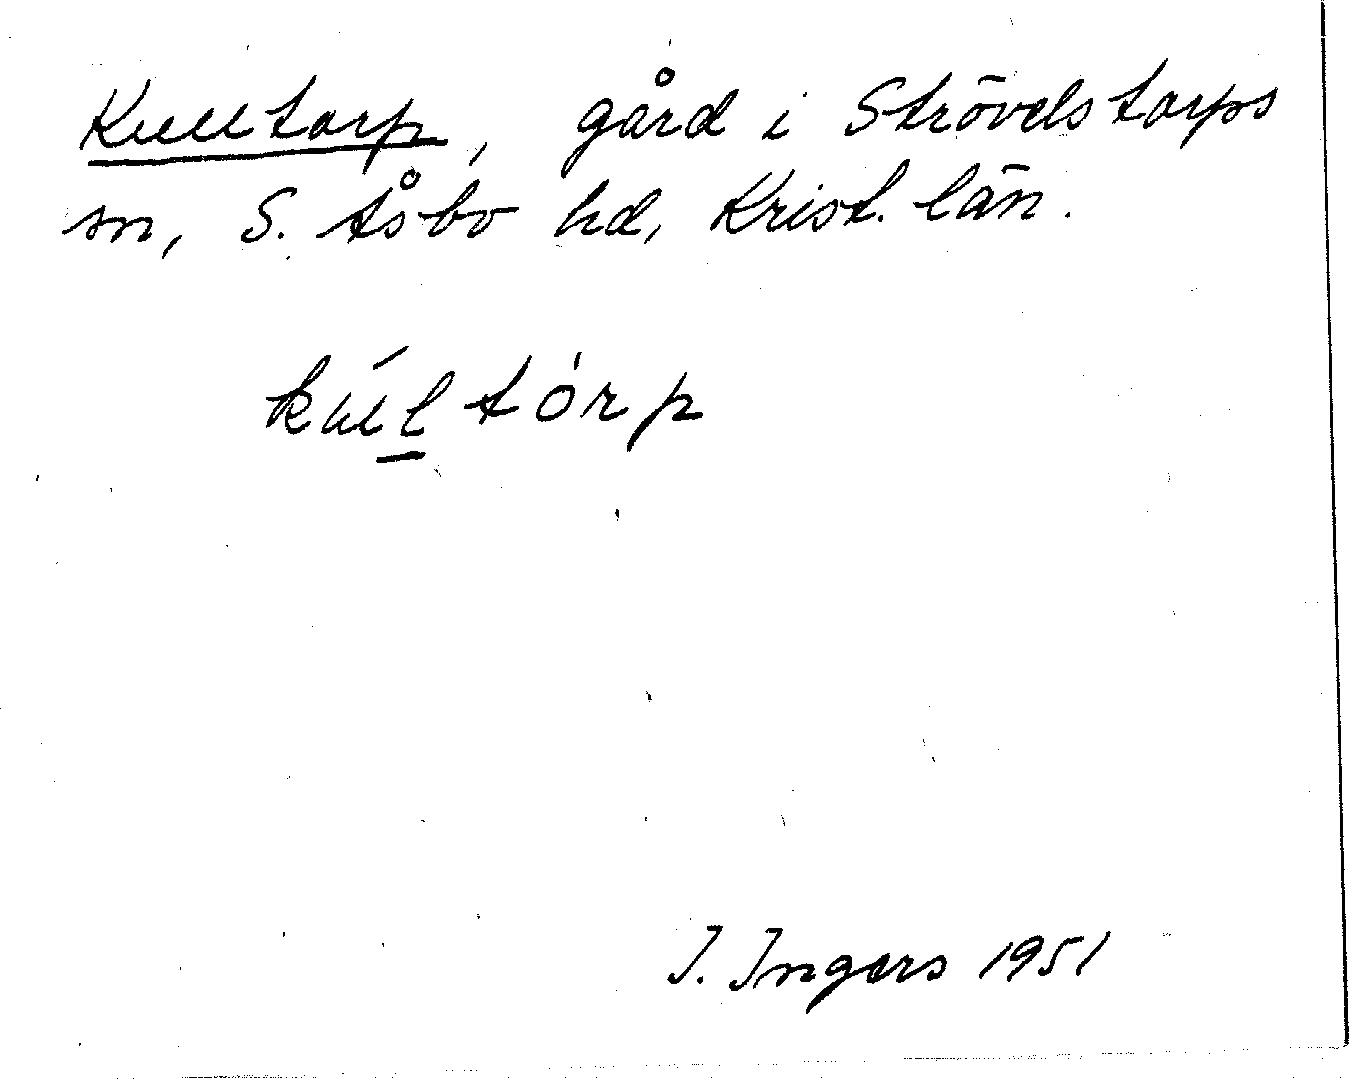 Kulltorp, gård i Strövelstorps
sn, S. Åsbo hd, Krist. län.
kúl̲tòrp
I. Ingers 1951